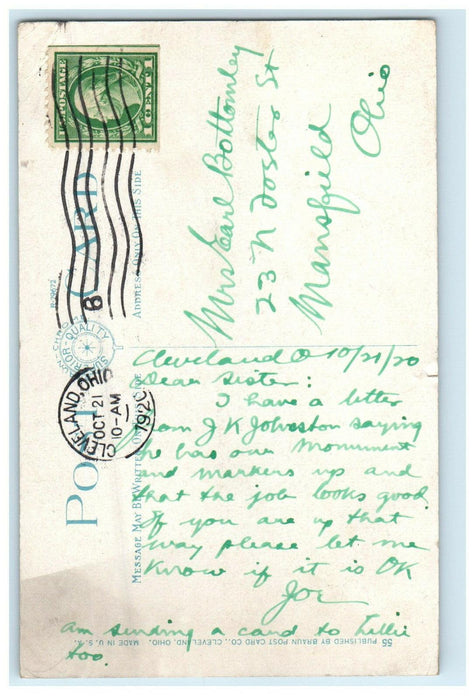 U.S. POSTAGE
1 CENT 1
POST CARD
ADDRESS ONLY ON THIS SIDE
MESSAGE MAY BE WRITTEN ON THIS SIDE
CLEVELAND, OHIO
OCT 21
10-AM
1920
6
Mrs Earl Bottomley
23 N Foster St
Mansfield
Ohio
Cleveland O 10/21/20
Dear Sister:
I have a letter
from J K Johnston saying
he has our Monument
and markers up and
that the job looks good
If you are up that
way please let me
know if it is OK
Joe
am sending a card to Lillie
too.
55 PUBLISHED BY BRAUN POST CARD CO., CLEVELAND, OHIO. MADE IN U. S. A.